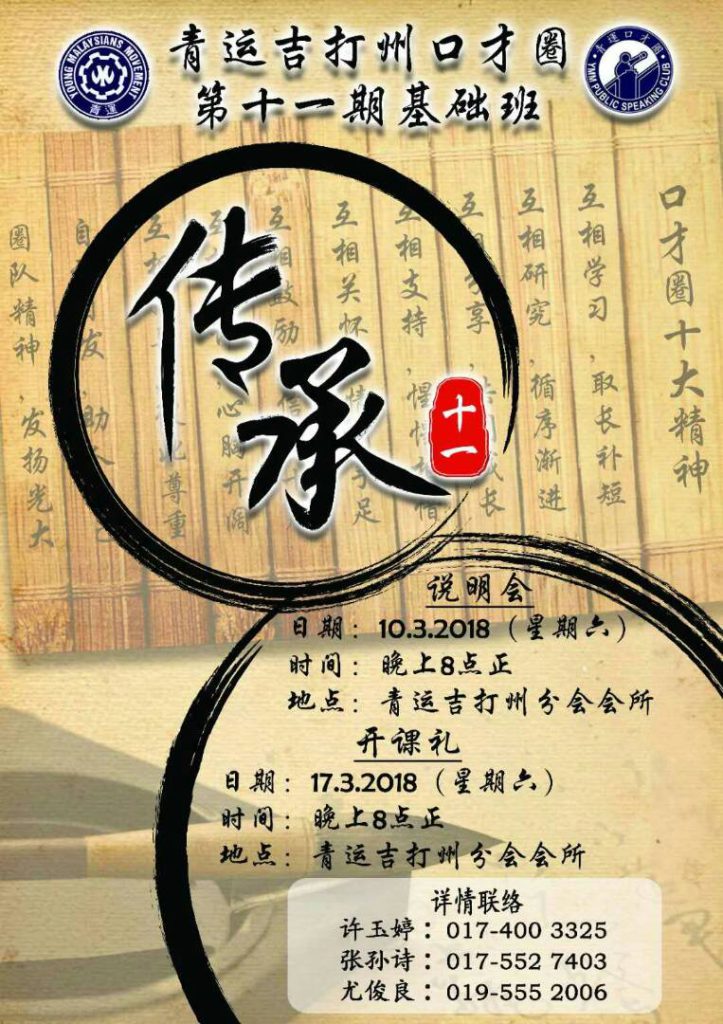 YOUNG MALAYSIANS MOVEMENT
青運
青運口才圈
YMM PUBLIC SPEAKING CLUB
青运吉打州口才圈
第十一期基础班
口才圈十大精神
互相学习，取长补短
互相研究，循序渐进
互相分享，共同成长
互相支持，惺惺相惜
互相关怀，足
互相鼓励，信
互，心胸开阔
互相，此尊重
自发，助人
圈队精神，发扬光大
传承
十一
说明会
日期：10.3.2018（星期六）
时间：晚上8点正
地点：青运吉打州分会会所
开课礼
日期：17.3.2018（星期六）
时间：晚上8点正
地点：青运吉打州分会会所
详情联络
许玉婷：017-400 3325
张孙诗：017-552 7403
尤俊良：019-555 2006